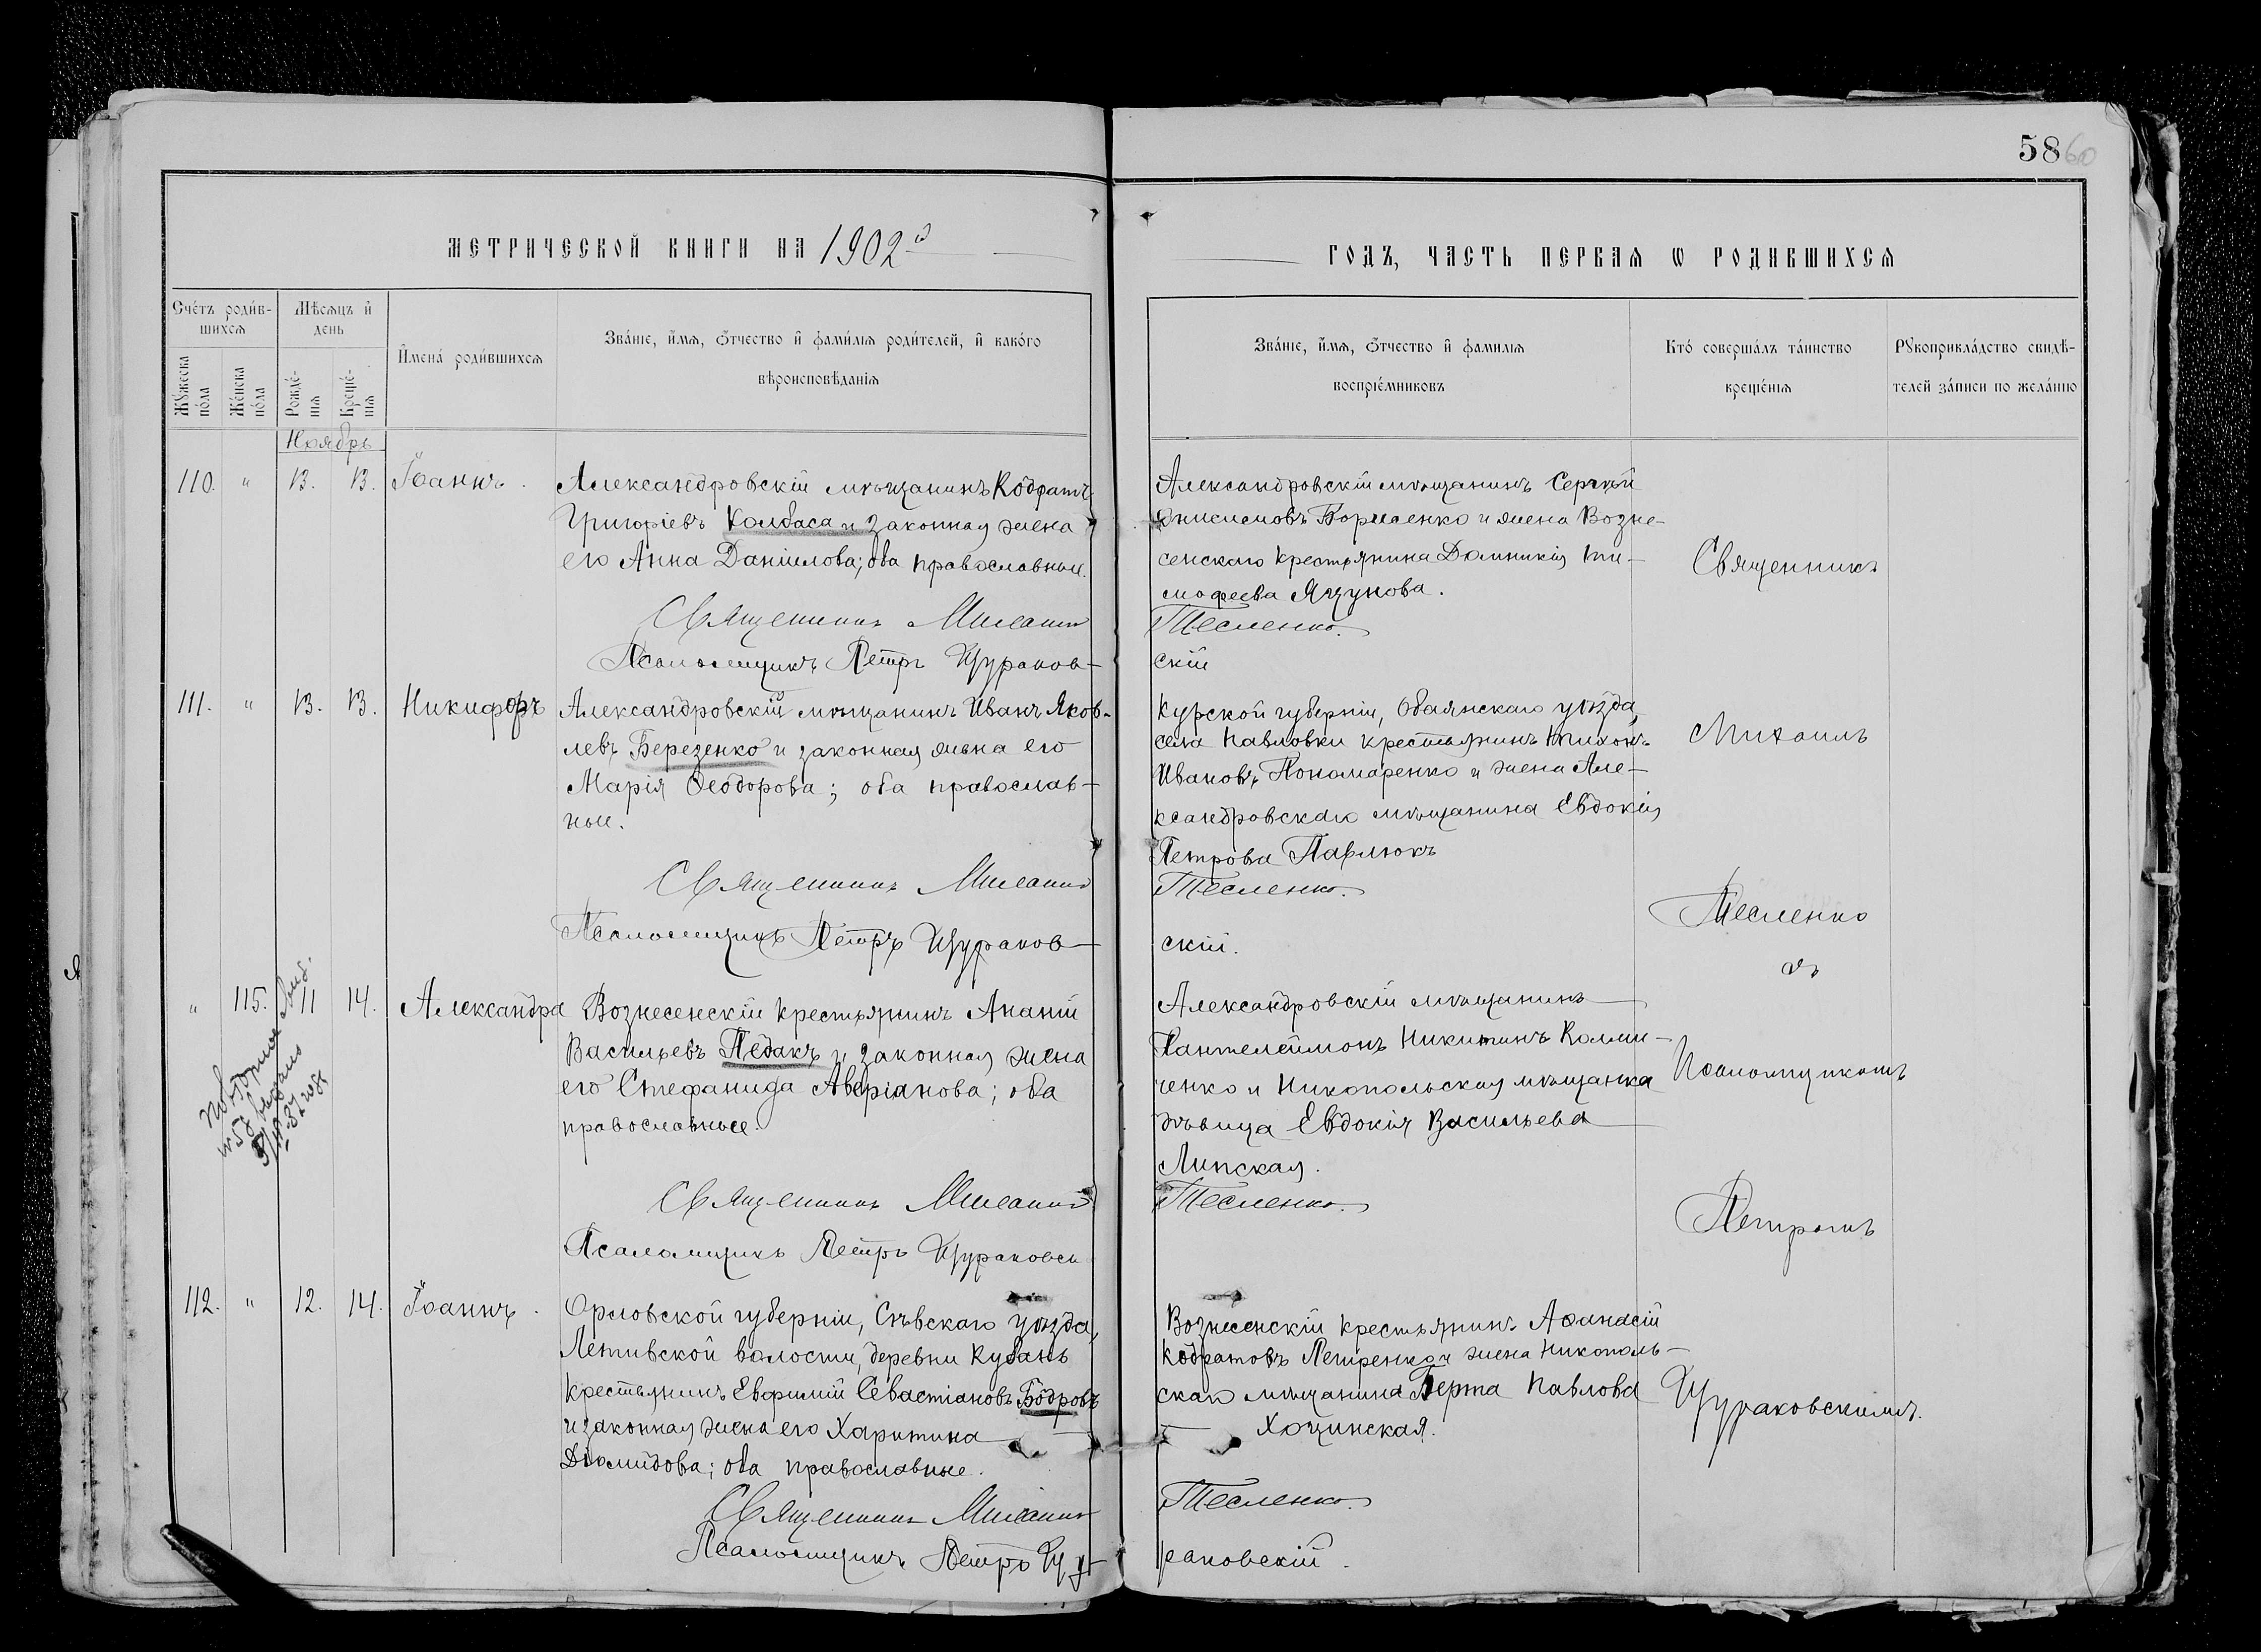 58 60
МЕТРИЧЕСКОЙ КНИГИ НА 1902й
ГОДЪ, ЧАСТЬ ПЕРВАЯ Ѡ РОДИВШИХСЯ
Счетъ родив-
шихся
Мужеска пола
Женска пола
Мѣсяцъ и
день
Рожде-
нія
Креще-
нія
Имена родившихся
Званіе, имя, отчество и фамилія родителей, и какого
вѣроисповѣданія
Званіе, имя, отчество и фамилія
воспріемниковъ
Кто совершалъ таинство
крещенія
Рукоприкладство свидѣ-
телей записи по желанію
Ноябрь
110. " 13. 13. Іоаннъ.
Александровскій мѣщанинъ Кодратъ
Григоріевъ Колбаса и законная жена
его Анна Даніилова; оба православные.
Священникъ Михаилъ
Псаломщикъ Петръ Щураков-
Александровскій мѣщанинъ Сергѣй
Онисимовъ Борисенко и жена Возне-
сенскаго крестьянина Домникія Ти-
мофеева Ящунова.
Тесленко.
скій
111. " 13. 13. Никифоръ
Александровскій мѣщанинъ Иванъ Яков-
левъ Березенко и законная жена его
Марія Ѳеодорова; оба православ-
ные.
Священникъ Михаилъ
Псаломщикъ Петръ Щураков-
Курской губерніи, Обаянскаго уѣзда,
села Павловки крестьянинъ Тихонъ
Ивановъ Пономаренко и жена Але-
ксандровскаго мѣщанина Евдокія
Петрова Павлюкъ
Тесленко.
скій.
" 115. 11 14. Александра
Повторное
выдано
Вознесенскій крестьянинъ Ананій
Васильевъ Педакъ и законная жена
его Стефанида Аверіанова; оба
православные.
Священникъ Михаилъ
Псаломщикъ Петръ Щураковск
Александровскій мѣщанинъ
Пантелеимонъ Никитинъ Калми-
ченко и Никопольская мѣщанка
дѣвица Евдокія Васильева
Липская.
Тесленко.
112. " 12. 14. Іоаннъ.
Орловской губерніи, Сѣвскаго уѣзда,
волости, деревни Кубань
крестьянинъ Евфимій Севастіановъ Бодровъ
и законная жена его Харитина
Діомидова; оба православные.
Священникъ Михаилъ
Псаломщикъ Петръ Щу-
Вознесенскій крестьянинъ Аѳанасій
Кодратовъ Петренко и жена Никополь-
скаго мѣщанина Берта Павлова
Хощинская.
Тесленко.
раковскій.
Священникъ
Михаилъ
Тесленко
съ
Псаломщикомъ
Петромъ
Щураковскимъ.